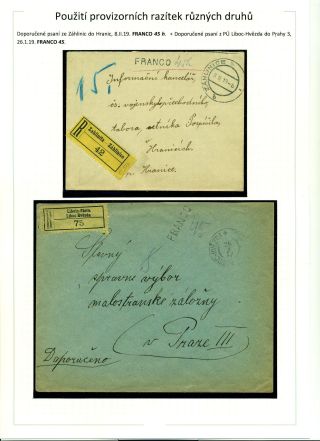 Použití provizorních razítek různých druhů
Doporučené psaní ze Záhlinic do Hranic, 8.II.19. FRANCO 45 h. • Doporučené psaní z PÚ Liboc-Hvězda do Prahy 3,
26.1.19. FRANCO 45.
FRANCO 45h
15,
ZÁHLINICE
Informační kancelář
čs. vojenských
tábora setníka Pospíšila
Hranicích
p. Hranice.
R
Zahlinitz - Záhlinice
42
R
Liboc Hvězda
75
FRANCO
45
Slavný
správní výbor
malostranské záložny
v Praze III
Doporučeno